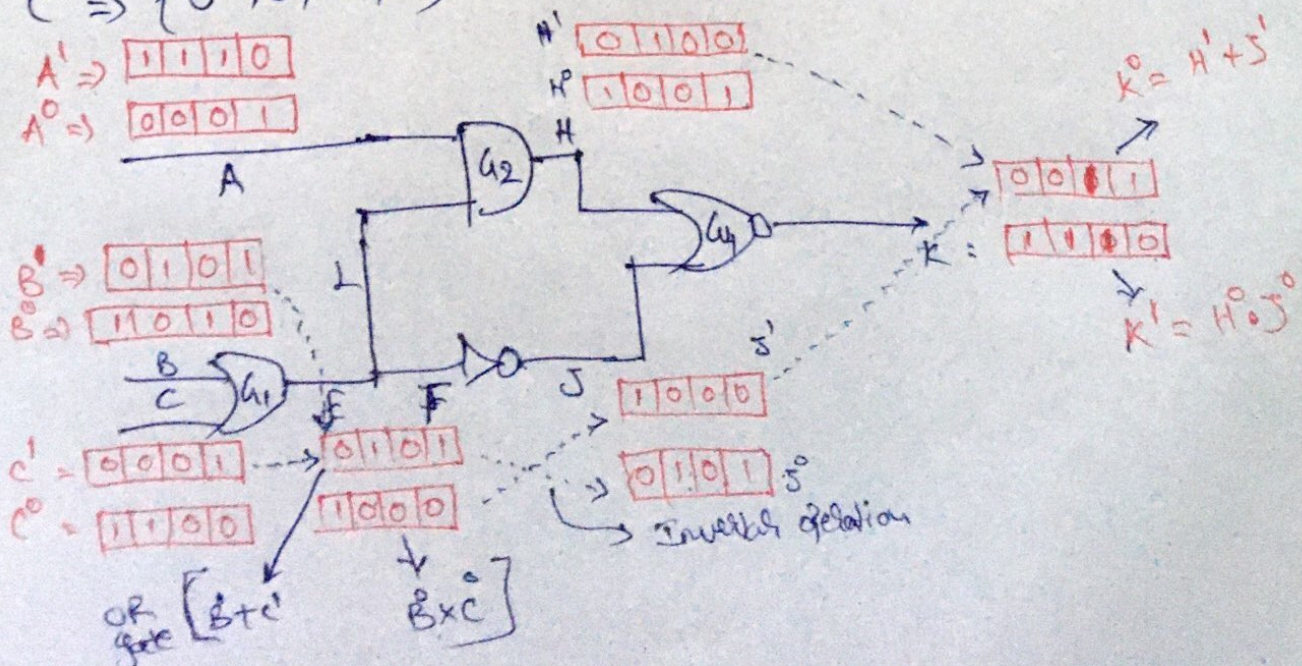 C => {0
A' => 1 1 1 0
A⁰ => 0 0 0 1
A
H' 0 1 0 0
H⁰ 1 0 0 1
H
G2
K⁰ = H' + J'
0 0 1
K :
1 1 0
K' = H⁰ . J⁰
G4
B' => 0 1 0 1
B⁰ => 1 0 1 0
L
B
C
G1
E
F
J
J'
1 0 0 0
0 1 0 1 J⁰
C' = 0 0 0 1
C⁰ = 1 1 0 0
0 1 0 1
1 0 0 0
Inverter operation
OR gate [B + C'
B⁰ x C⁰]